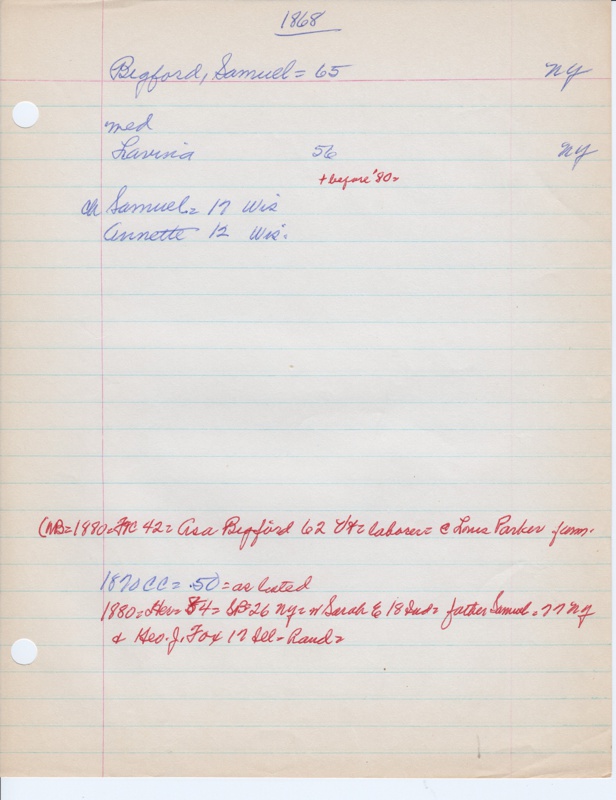 1868
Bigford, Samuel = 65 NY
med
Lavina 56 NY
+ before '80 =
ch Samuel = 17 Wis
Annette 12 Wis.
(NB = 1880 = 42 = Asa Bigford 62 Vt = laborer = c Louis Parker farm.
1870 CC = .50 = as listed
1880 = = 84 = SB = 26 NY = w Sarah E 18 Ind = father Samuel = 77 NY
& Geo. J. Fox 17 Ill = Rand =